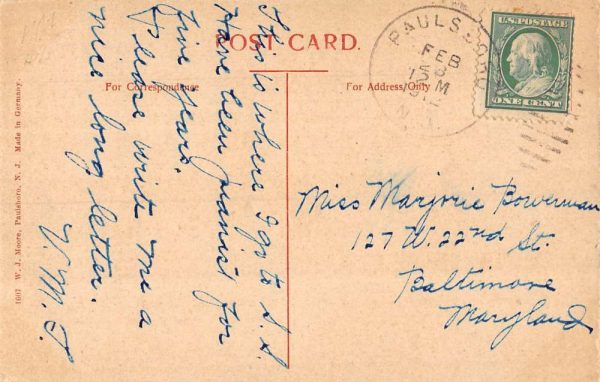 POST CARD.
For Correspondence
For Address/Only
PAULSBORO
FEB
U.S. POSTAGE
ONE CENT
This is where I go to S. S.
Have been pianist for
five years.
Please write me a
nice long letter.
V. M. T.
Miss Marjorie Bowerman
127 W. 22nd St.
Baltimore
Maryland
1607 W. J. Moore, Paulsboro, N. J. Made in Germany.